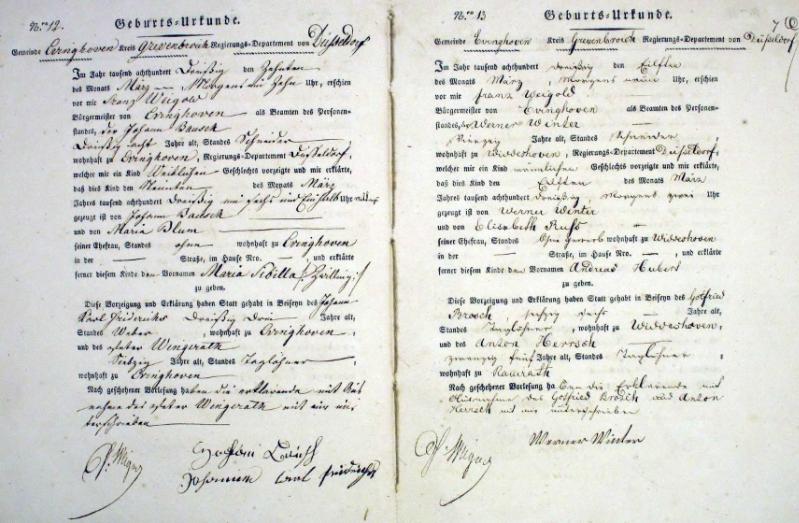 N.ro 12.
Geburts-Urkunde.
Gemeinde Evinghoven Kreis Grevenbroich Regierungs-Departement von Düsseldorf
Im Jahr tausend achthundert Dreißig den Zehnten
des Monats März Morgens um Zehn Uhr, erschien
vor mir Franz Weigold
Bürgermeister von Evinghoven als Beamten des Personen-
standes, der Johann Bausch
Dreißig acht Jahr alt, Standes Schneider
wohnhaft zu Evinghoven, Regierungs-Departement Düsseldorf,
welcher mir ein Kind Weiblichen Geschlechts vorzeigte und mir erklärte,
daß dies Kind den Neunten des Monats März
Jahres tausend achthundert Dreißig um sechs und Einhalb Uhr
gezeugt ist von Johann Bausch
und von Maria Blum
seiner Ehefrau, Standes ohne wohnhaft zu Evinghoven
in der — Straße, im Hause Nro. —, und erklärte
ferner diesem Kinde den Vornamen Maria Sibilla /: Zwilling :/
zu geben.
Diese Vorzeigung und Erklärung haben Statt gehabt in Beiseyn des Johann
Karl Friderichs Dreißig Drei Jahre alt,
Standes Weber, wohnhaft zu Evinghoven
und des Peter Wingerath
Siebzig Jahre alt, Standes Taglöhner
wohnhaft zu Evinghoven
Nach geschehener Vorlesung haben die erklarende mit Aus
nahme des Peter Wingerath mit mir un
terschrieben
N.ro 13
Geburts-Urkunde.
7
Gemeinde Evinghoven Kreis Grevenbroich Regierungs-Departement von Düsseldorf
Im Jahr tausend achthundert dreißig den Eilften
des Monats März, Morgens neun Uhr, erschien
vor mir Franz Weigold
Bürgermeister von Evinghoven als Beamten des Personen-
standes, der Werner Winter
vierzig Jahre alt, Standes Schneider
wohnhaft zu Widdeshoven, Regierungs-Departement Düsseldorf,
welcher mir ein Kind männlichen Geschlechts vorzeigte und mir erklärte,
daß dies Kind den Eilften des Monats März
Jahres tausend achthundert dreißig, Morgens zwei Uhr
gezeugt ist von Werner Winter
und von Elisabeth
seiner Ehefrau, Standes Ohne Gewerb wohnhaft zu Widdeshoven
in der — Straße, im Hause Nro. —, und erklärte
ferner diesem Kinde den Vornamen Andreas Hubert
zu geben.
Diese Vorzeigung und Erklärung haben Statt gehabt in Beiseyn des Gotfried
Brosch, sechzig sechs Jahre alt,
Standes Taglöhner, wohnhaft zu Widdeshoven,
und des Anton Herrsch
zwanzig fünf Jahre alt, Standes Taglöhner
wohnhaft zu Ramrath
Nach geschehener Vorlesung haben die Erklärende mit
Ausnahme des Gotfried Brosch und Anton
Herrsch mit mir unterschrieben
Werner Winter